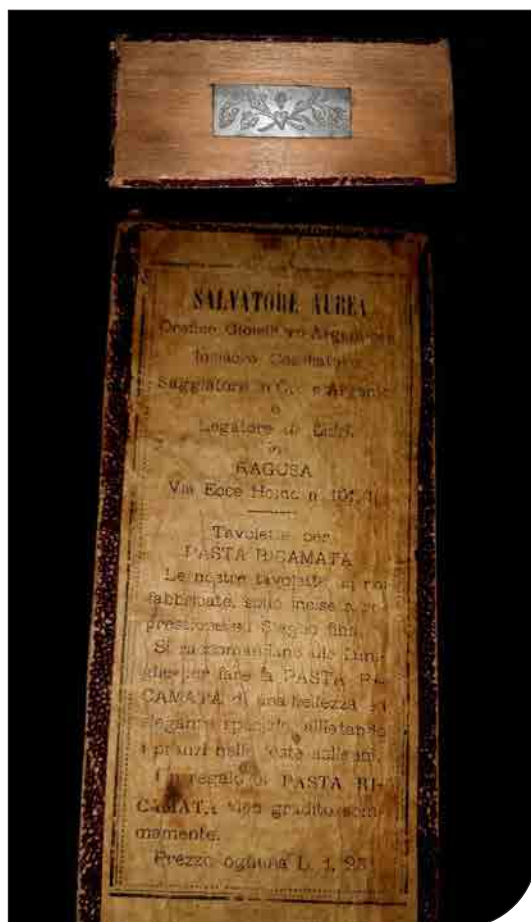 SALVATORE AUREA
Orefice Gioielliere Argentiere
Incisore Cesellatore
Saggiatore in Oro e Argento
e
Legatore di Libri.
in
RAGUSA
Via Ecce Homo n.
Tavolette per
PASTA RICAMATA
Le nostre tavolette, da noi
fabbricate, sono incise a
Stagno fino.
Si raccomandano alle fami-
glie per fare la PASTA RI-
CAMATA di una bellezza ed
eleganza allietando
i pranzi nelle feste solenni.
Un regalo di PASTA RI-
CAMATA vien gradito som-
mamente.
Prezzo ognuna L. 1, 25